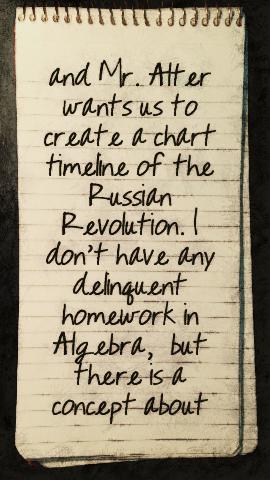 and Mr. Atter
wants us to
create a chart
timeline of the
Russian
Revolution. I
don't have any
delinquent
homework in
Algebra, but
there is a
concept about